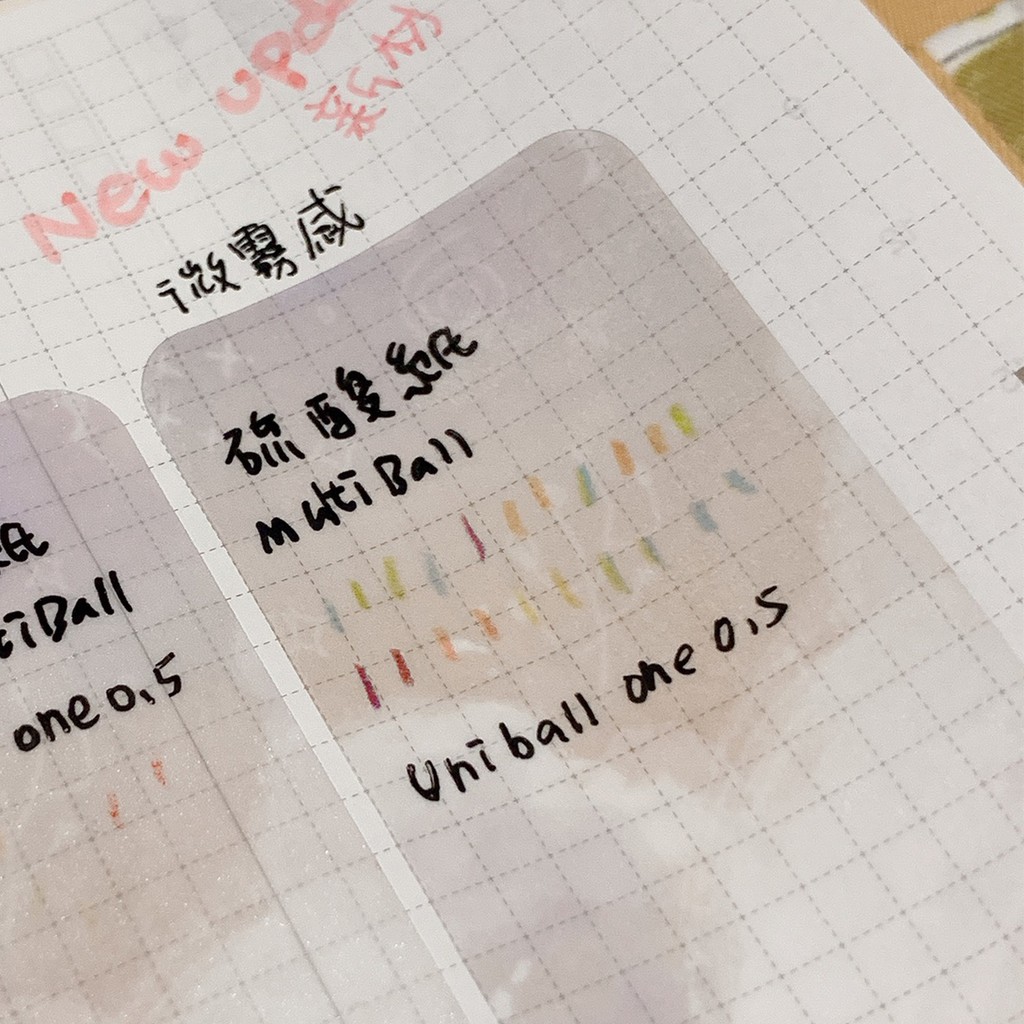 New upd
微霧感
硫酸紙
MultiBall
Uniball one 0.5
紙
tiBall
one 0.5